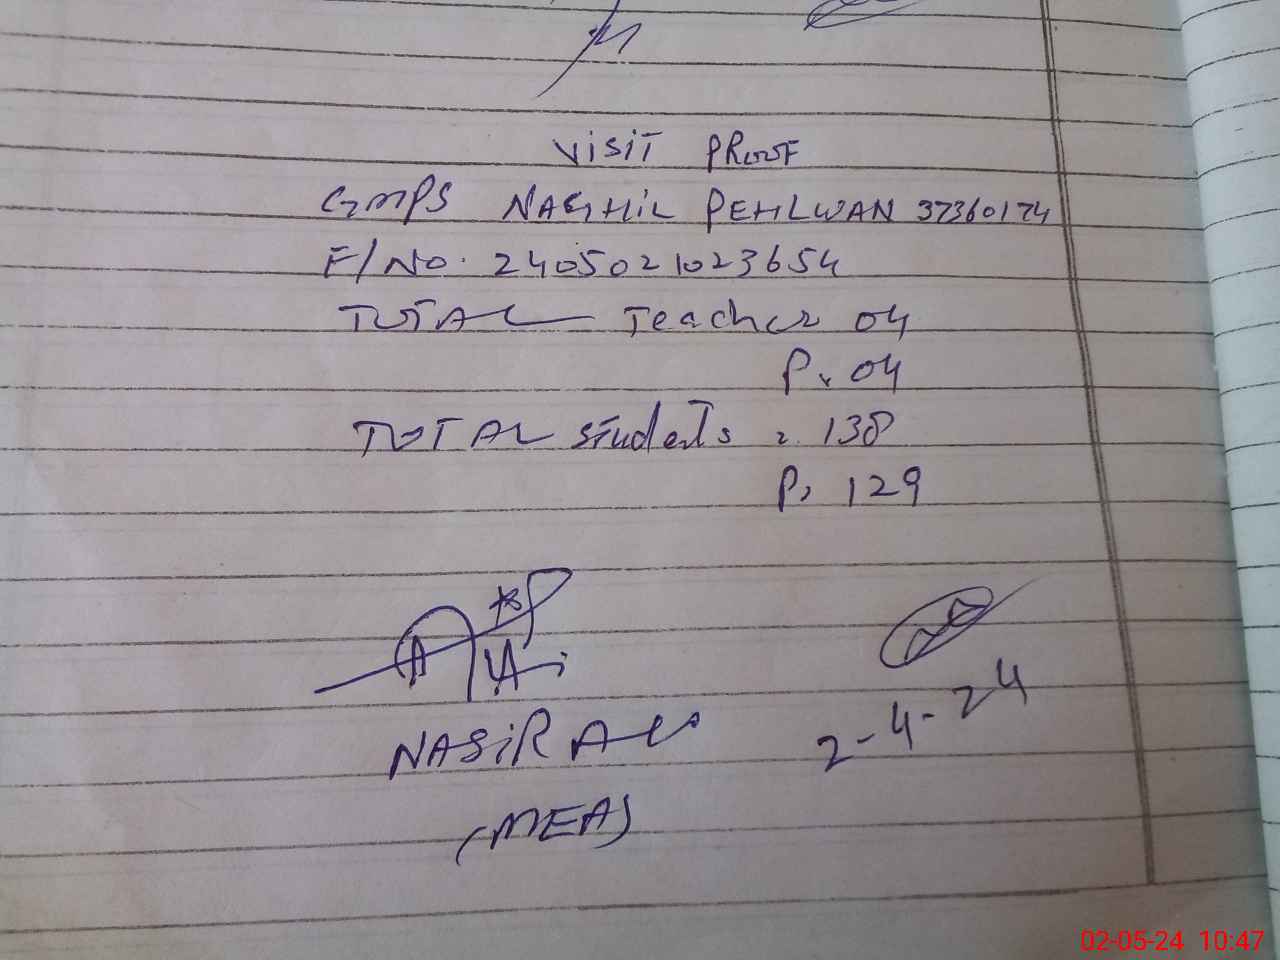 VISIT PROOF
GMPS NAGHIL PEHLWAN 37360174
F/No. 2405021023654
TOTAL Teacher 04
P. 04
TOTAL students : 138
P. 129
NASIR ALi
2-4-24
(MEA)
02-05-24 10:47